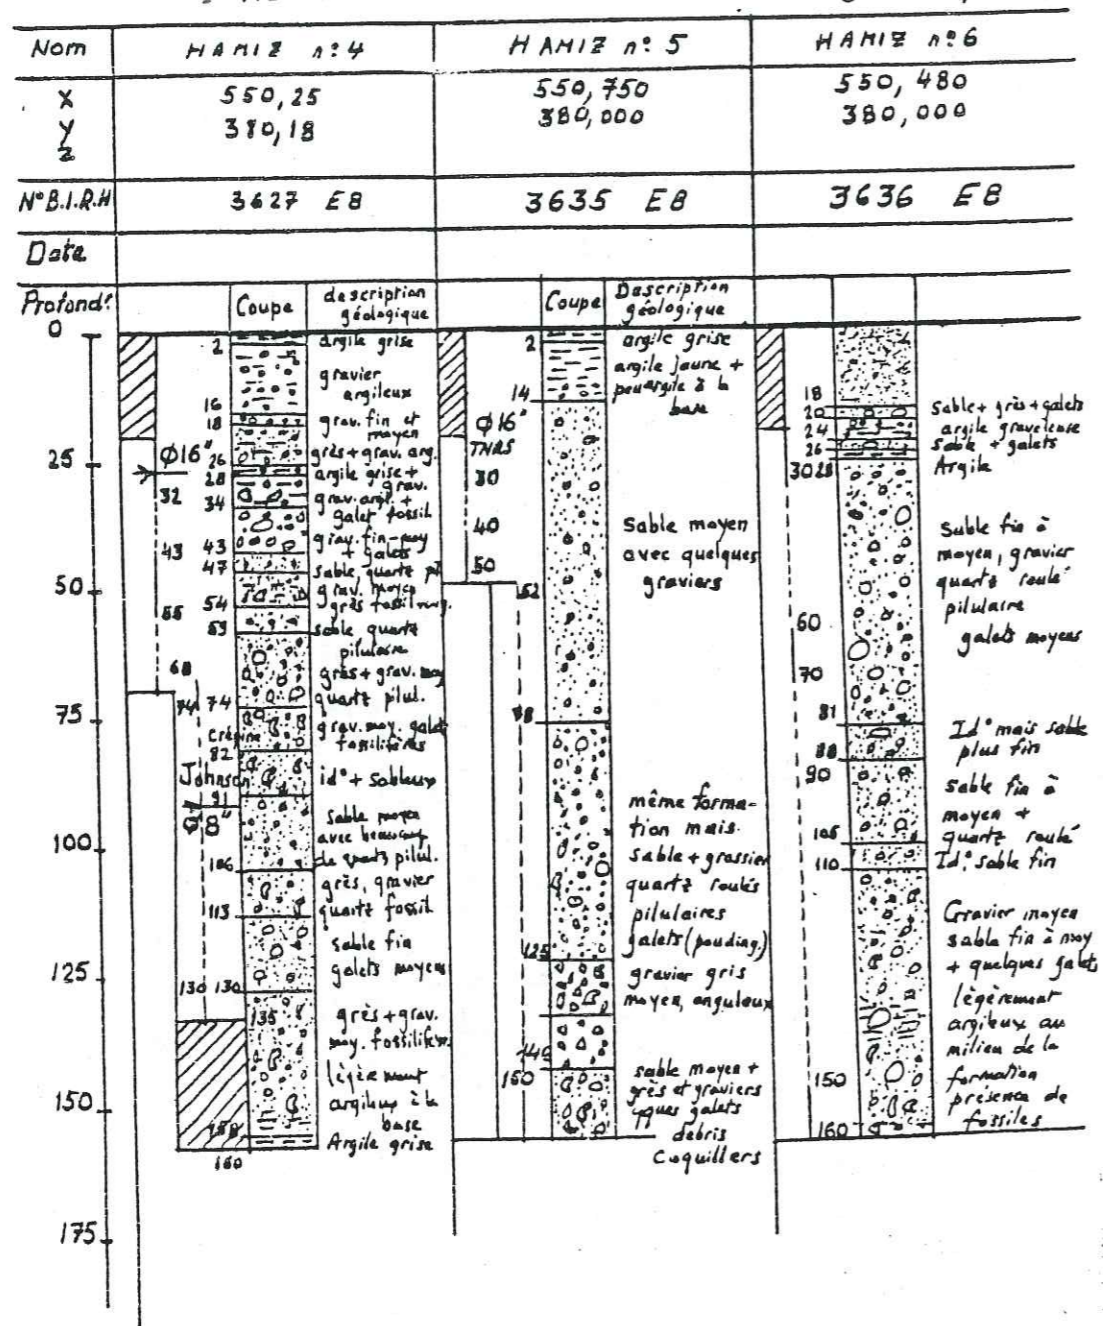 Nom HAMIZ n° 4 HAMIZ n° 5 HAMIZ n° 6
X 550,25 550,750 550,480
Y 380,18 380,000 380,000
Z
N° B.I.R.H 3627 E8 3635 E8 3636 E8
Date
Profondr Coupe description géologique Coupe Description géologique
0
25
50
75
100
125
150
175
2
16
18
26
28
34
43
47
54
59
74
82
91
106
113
130
135
158
160
Ø16"
32
43
55
68
74
Crépine
Johnson
Ø8"
130
argile grise
gravier
argileux
grav. fin et
moyen
grès + grav. arg.
argile grise +
grav.
grav. argl. +
galet fossil
grav. fin-moy
+ galets
sable, quartz pil
grav. moyen
grès fossil
sable quartz
pilulaire
grès + grav. moy
quartz pilul.
grav. moy. galet
fossilifères
id° + sableux
sable moyen
avec beaucoup
de quartz pilul.
grès, gravier
quartz fossil
sable fin
galets moyens
grès + grav.
moy. fossilifères
légèrement
argileux à la
base
Argile grise
2
14
Ø16"
30
40
50
52
78
125
140
150
argile grise
argile jaune +
peu argile à la
base
Sable moyen
avec quelques
graviers
même forma-
tion mais
sable + grossier
quartz roulés
pilulaires
galets (pouding.)
gravier gris
moyen, anguleux
sable moyen +
grès et graviers
qques galets
debris
Coquillers
18
20
24
26
30 28
60
70
81
88
90
105
110
150
160
Sable + grès + galets
argile graveleuse
Sable + galets
Argile
Sable fin à
moyen, gravier
quartz roulé
pilulaire
galets moyens
Id° mais sable
plus fin
sable fin à
moyen +
quartz roulé
Id° sable fin
Gravier moyen
sable fin à moy
+ quelques galets
légèrement
argileux au
milieu de la
formation
présence de
fossiles